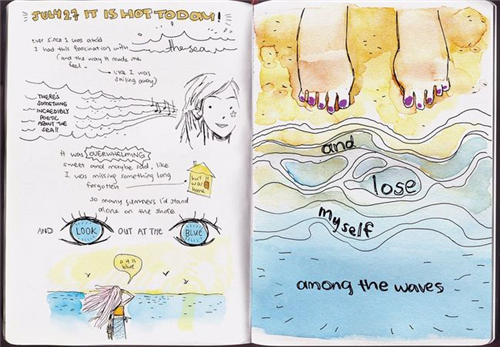 JULY 27 IT IS HOT TODAY!
ever since I was a kid
I had this fascination with the sea
(and the way it made me
feel
like I was
sailing away)
THERE'S
SOMETHING
INCREDIBLY
POETIC
ABOUT THE
SEA!!
It was OVERWHELMING
sweet and maybe sad, like
I was missing something long
forgotten
was
home
so many summers I'd stand
alone on the shore
AND LOOK OUT AT THE BLUE
it is
blue
and
lose
myself
among the waves